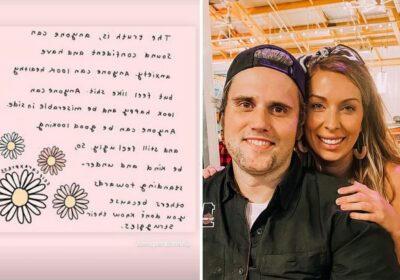 The truth is, anyone can
Sound confident and have
anxiety. Anyone can look healthy
but feel like shit. Anyone can
look happy and be miserable inside.
Anyone can be good looking
and ugly. So,
be kind and be under-
standing towards
others because
you don't know their
struggles.